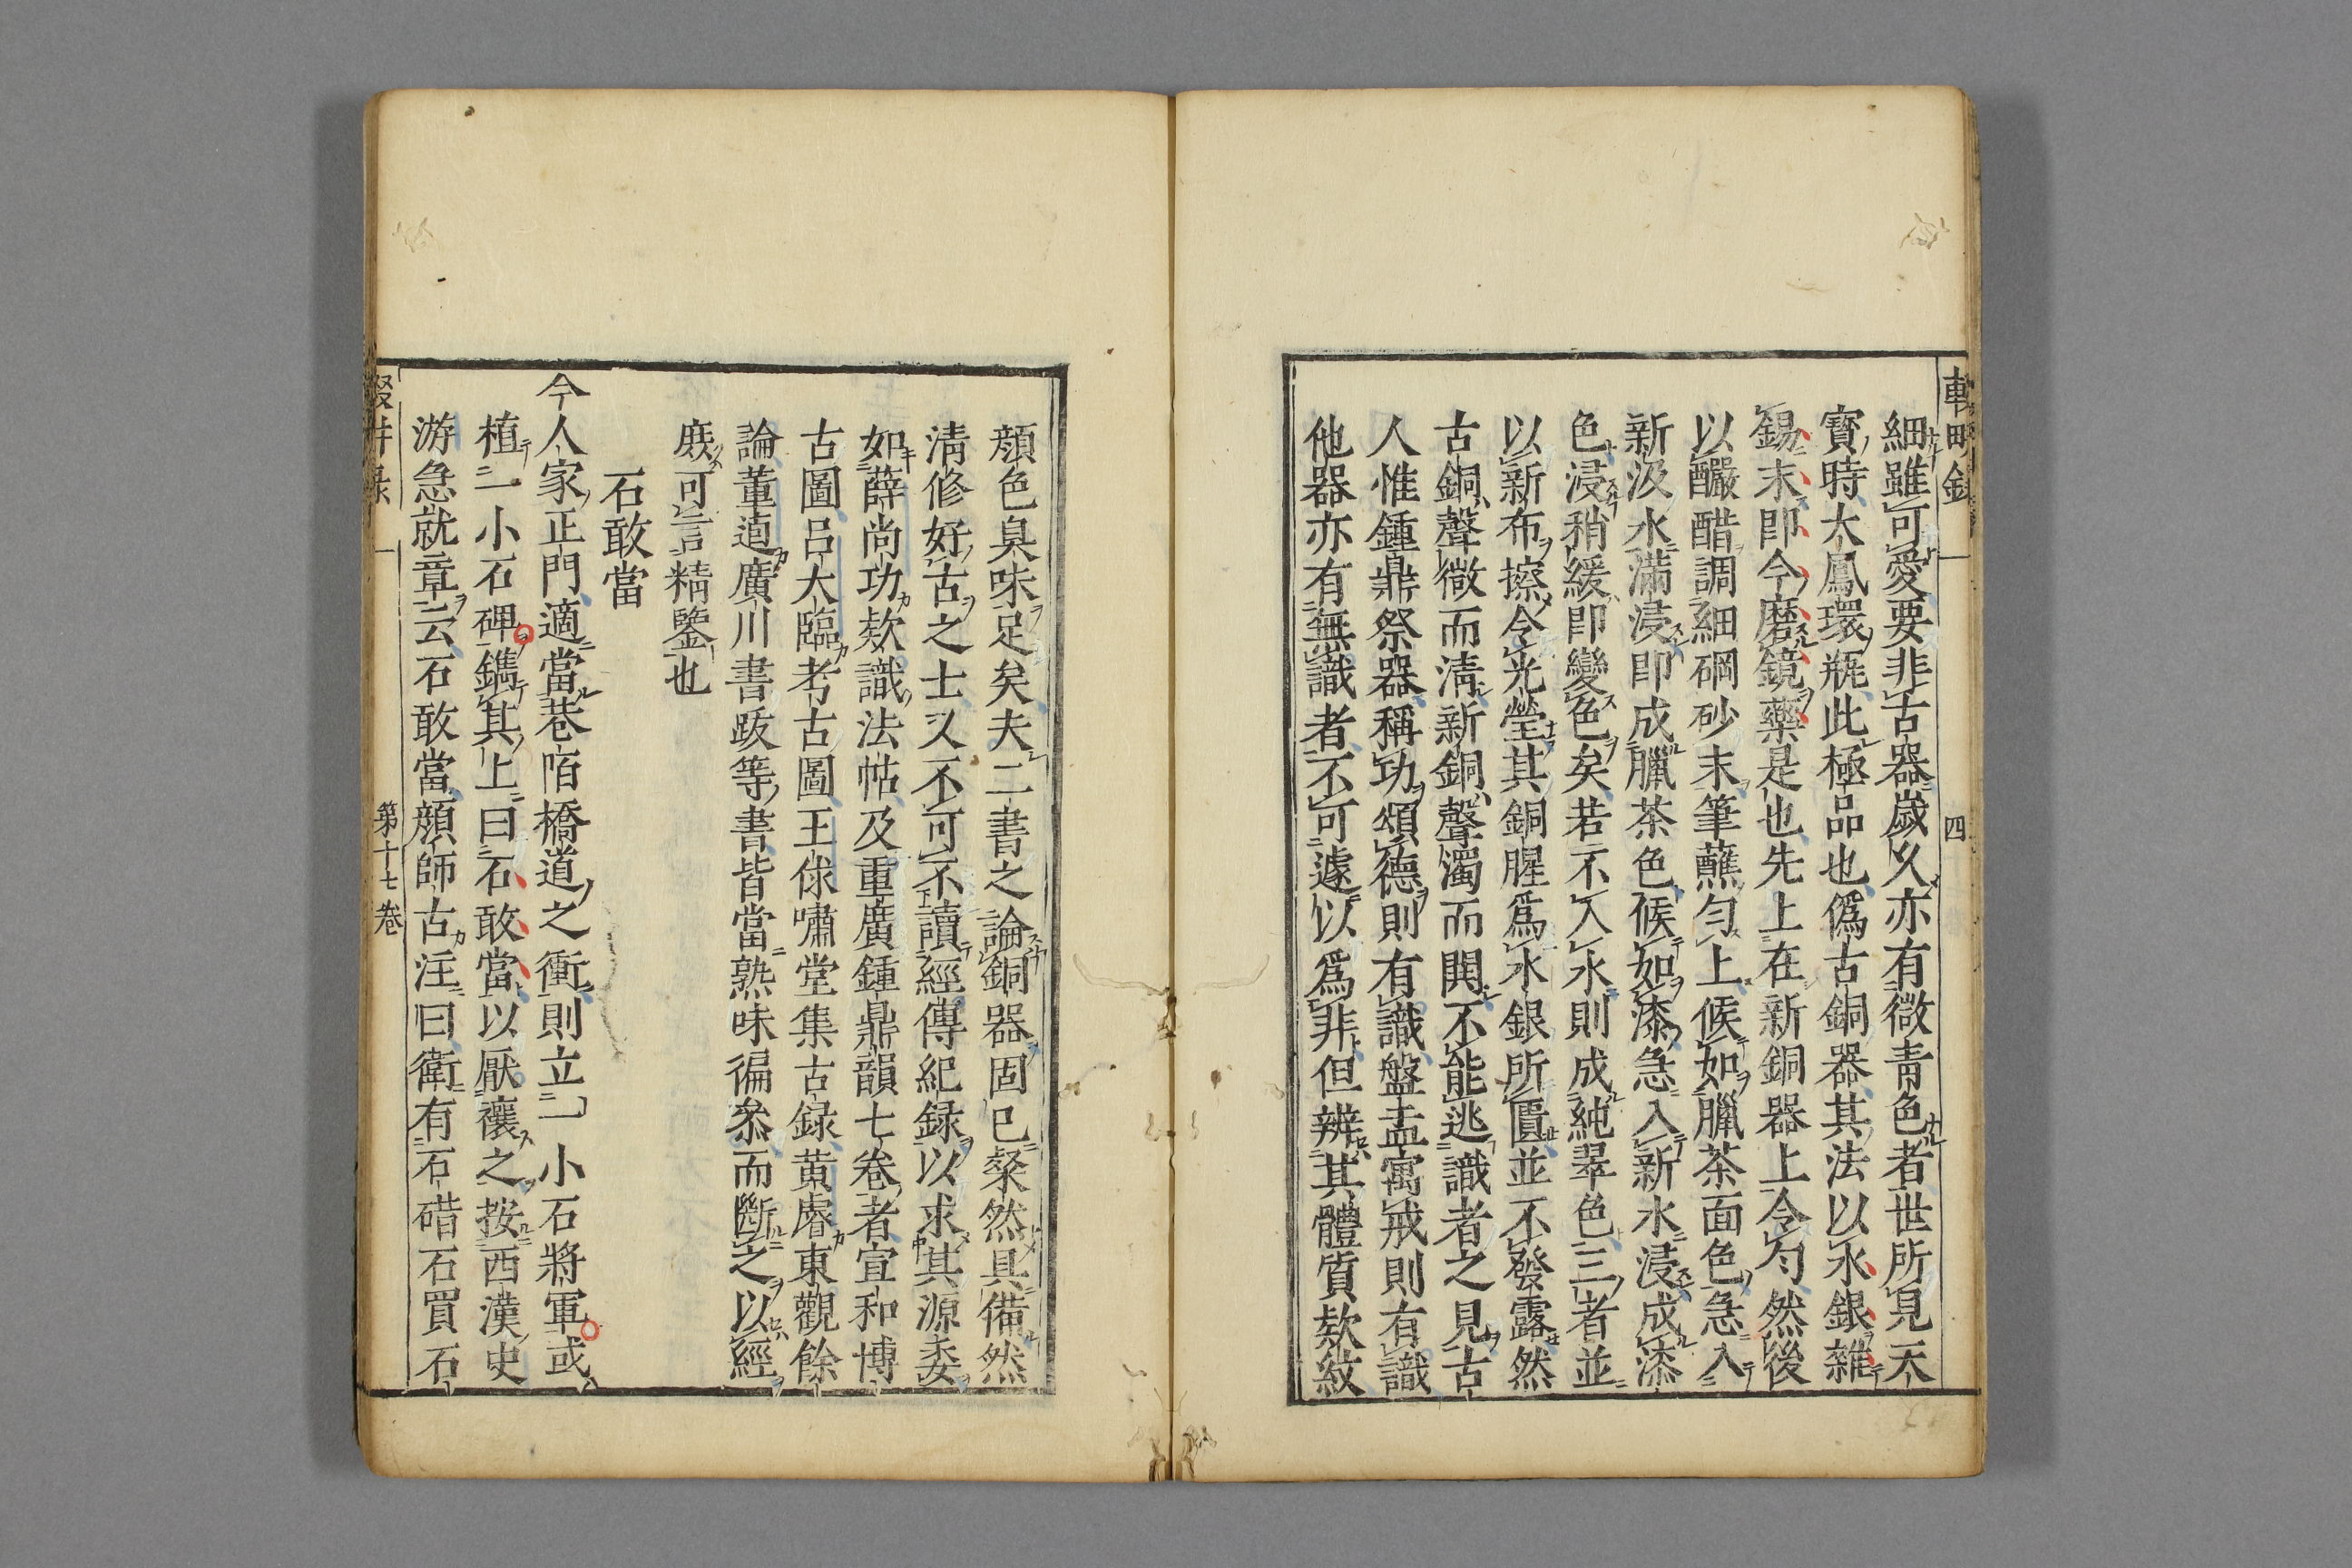 細雖可愛要非古器歲久亦有微青色者世所見天
寶時大鳳環瓶此極品也偽古銅器其法以水銀雜
錫末即今磨鏡藥是也先上在新銅器上令勻然後
以釅醋調細硇砂末筆蘸勻上候如臘茶面色急入
新汲水滿浸即成臘茶色候如漆急入新水浸成漆
色浸稍緩即變色矣若不入水則成純翠色三者並
以新布擦令光瑩其銅腥爲水銀所匱並不發露然
古銅聲微而清新銅聲濁而鬨不能逃識者之見古
人惟鍾鼎祭器稱功頌德則有識盤盂寓戒則有識
他器亦有無識者不可遽以爲非但辨其體質欵紋
四
顏色臭味足矣夫二書之論銅器固已粲然具備然
清修好古之士又不可不讀經傳紀録以求其源委
如薛尚功欵識法帖及重廣鍾鼎韻七卷者宣和博
古圖呂大臨考古圖王俅嘯堂集古録黄睿東觀餘
論董逌廣川書跋等書皆當熟味徧叅而斷之以經
庻可言精鑒也
石敢當
今人家正門適當巷陌橋道之衝則立一小石將軍或
植一小石碑鐫其上曰石敢當以厭禳之按西漢史
游急就章云石敢當顏師古注曰衛有石碏石買石
第十七卷